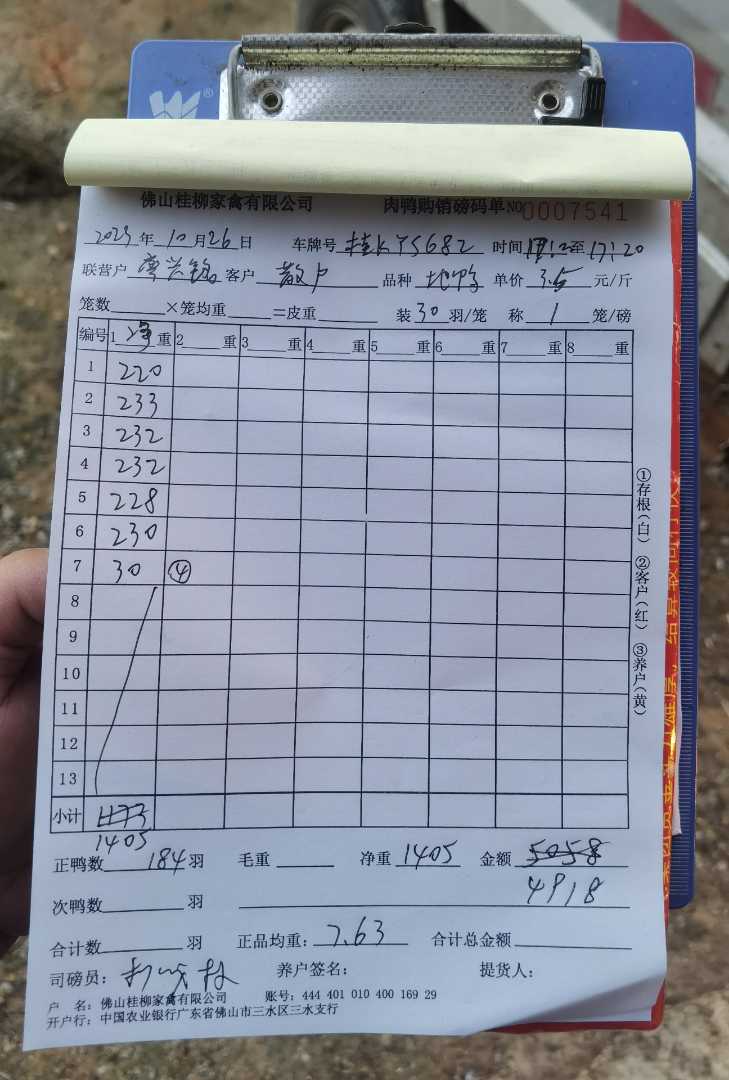 佛山桂柳家禽有限公司 肉鸭购销磅码单 NO 0007541
2023年10月26日 车牌号 桂KYS682 时间 至17:20
联营户 客户 散户 品种 单价3.5元/斤
笼数 ×笼均重 =皮重 装30羽/笼 称1笼/磅
编号 1净重 2 重 3 重 4 重 5 重 6 重 7 重 8 重
1 220
2 233
3 232
4 232
5 228
6 230
7 30 ④
8
9
10
11
12
13
小计
1405
正鸭数184羽 毛重 净重1405 金额5058
4918
次鸭数 羽
合计数 羽 正品均重:7.63 合计总金额
司磅员: 养户签名: 提货人:
户 名:佛山桂柳家禽有限公司 账号:444 401 010 400 169 29
开户行:中国农业银行广东省佛山市三水区三水支行
①存根(白) ②客户(红) ③养户(黄)